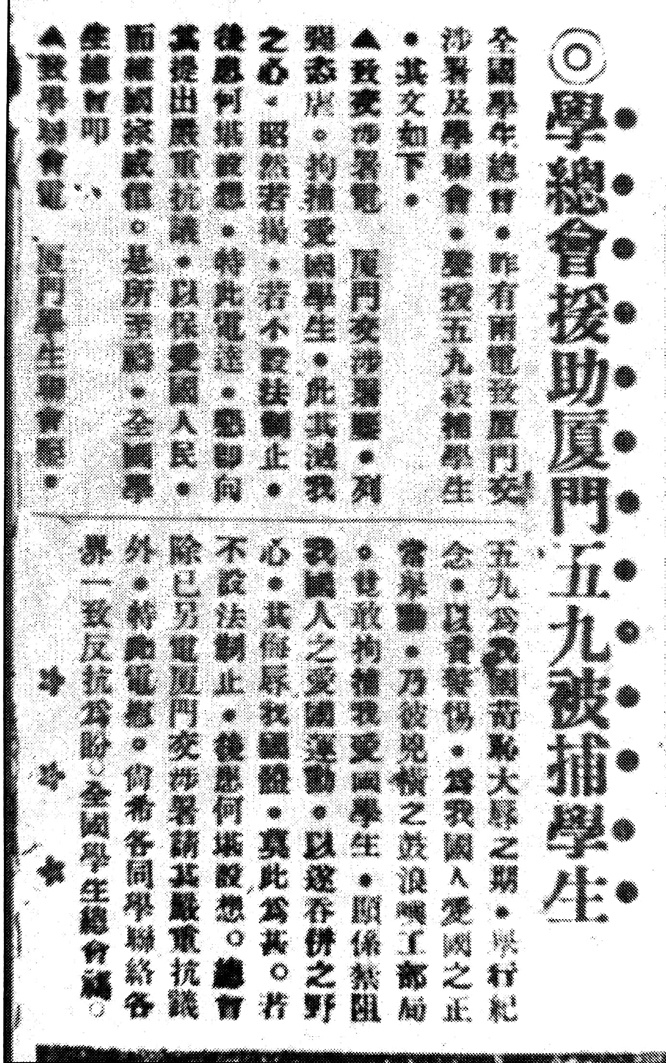 ◎學總會援助厦門五九被捕學生
全國學生總會●昨有兩電致厦門交
涉署及學聯會●聲援五九被捕學生
●其文如下●
▲致交涉署電 厦門交涉署鑒●列
强恣虐。拘捕愛國學生●此其滅我
之心●昭然若揭●若不設法制止●
後患何堪設想●特此電達●懇卽向
其提出嚴重抗議●以保愛國人民●
而維國家威信。是所至禱●全國學
生總會叩
▲致學聯會電 厦門學生聯會鑒●
五九爲我國奇恥大辱之期●舉行紀
念●以資警惕●爲我國人愛國之正
當舉動●乃彼兇橫之鼓浪嶼工部局
●竟敢拘捕我愛國學生●顯係禁阻
我國人之愛國運動●以遂吞併之野
心●其侮辱我國體●莫此爲甚。若
不設法制止●後患何堪設想。總會
除已另電厦門交涉署請其嚴重抗議
外●特電慰。尙希各同學聯絡各
界一致反抗爲盼。全國學生總會。